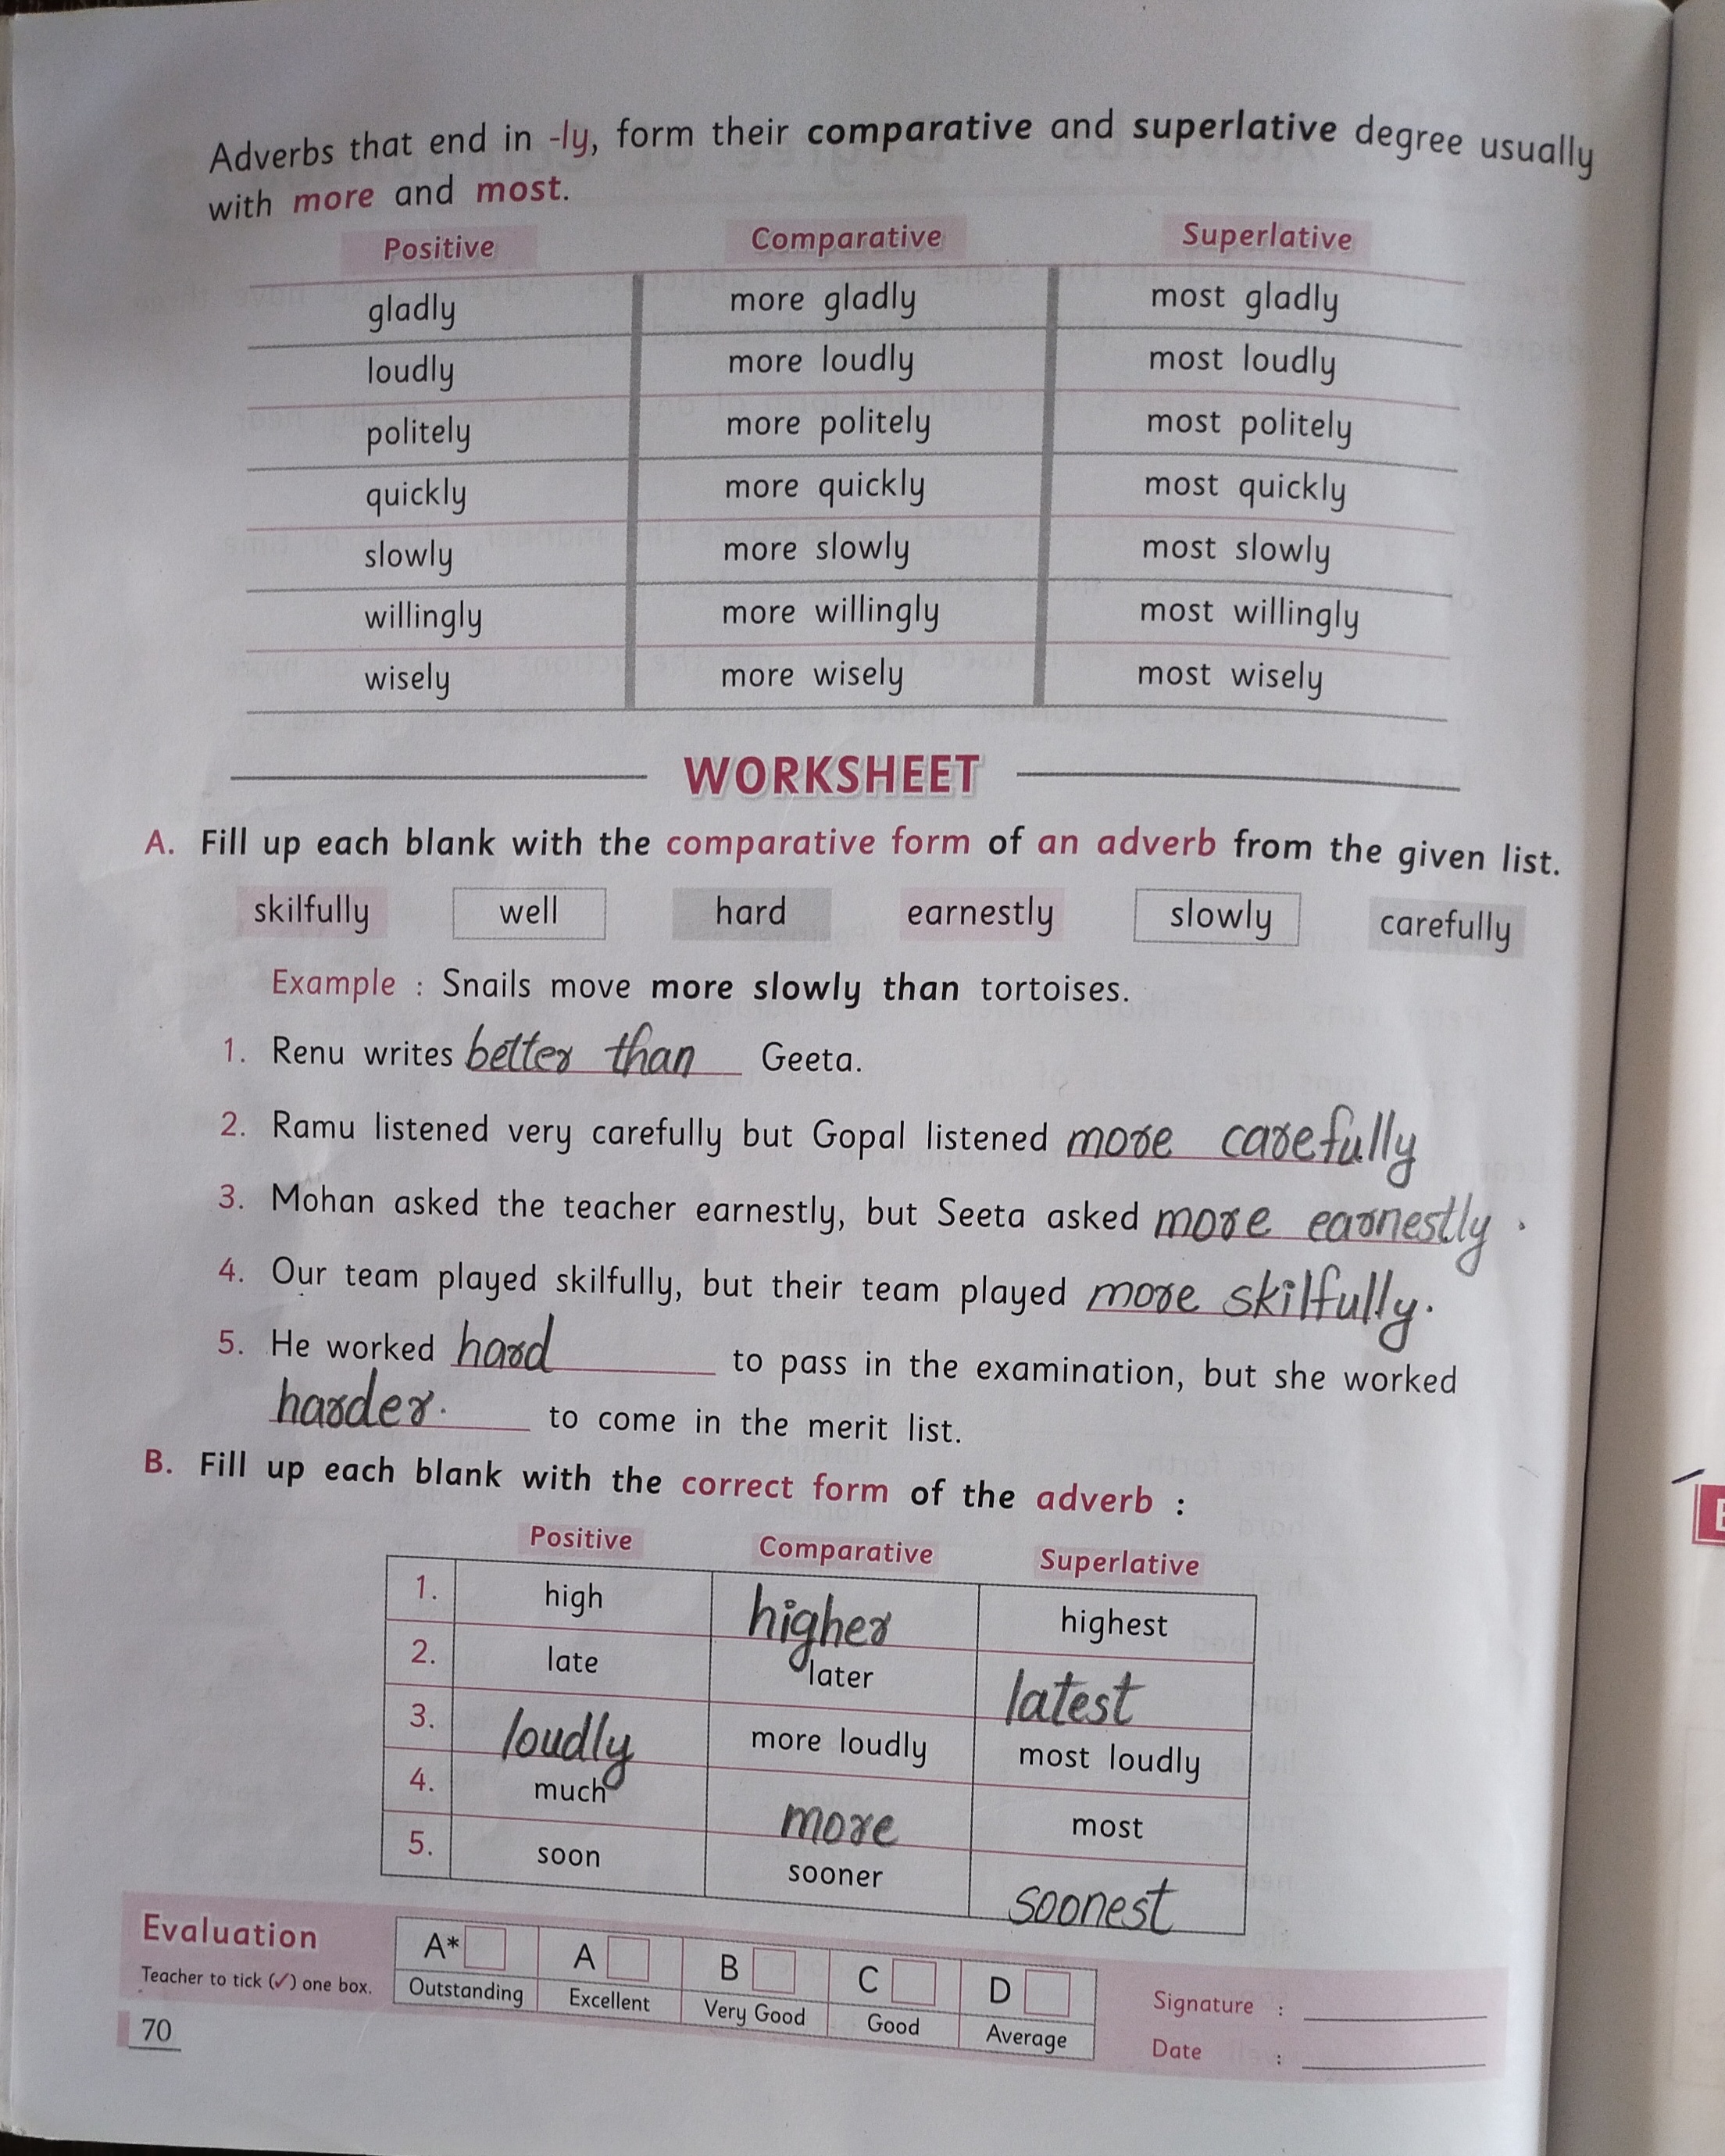 Adverbs that end in -ly, form their comparative and superlative degree usually
with more and most.
Positive Comparative Superlative
gladly more gladly most gladly
loudly more loudly most loudly
politely more politely most politely
quickly more quickly most quickly
slowly more slowly most slowly
willingly more willingly most willingly
wisely more wisely most wisely
WORKSHEET
A. Fill up each blank with the comparative form of an adverb from the given list.
skilfully well hard earnestly slowly carefully
Example : Snails move more slowly than tortoises.
1. Renu writes better than Geeta.
2. Ramu listened very carefully but Gopal listened more carefully
3. Mohan asked the teacher earnestly, but Seeta asked more earnestly.
4. Our team played skilfully, but their team played more skilfully.
5. He worked hard to pass in the examination, but she worked
harder. to come in the merit list.
B. Fill up each blank with the correct form of the adverb :
Positive Comparative Superlative
1. high higher highest
2. late later latest
3. loudly more loudly most loudly
4. much more most
5. soon sooner soonest
Evaluation
Teacher to tick (✓) one box.
A* A B C D
Outstanding Excellent Very Good Good Average
Signature :
Date :
70